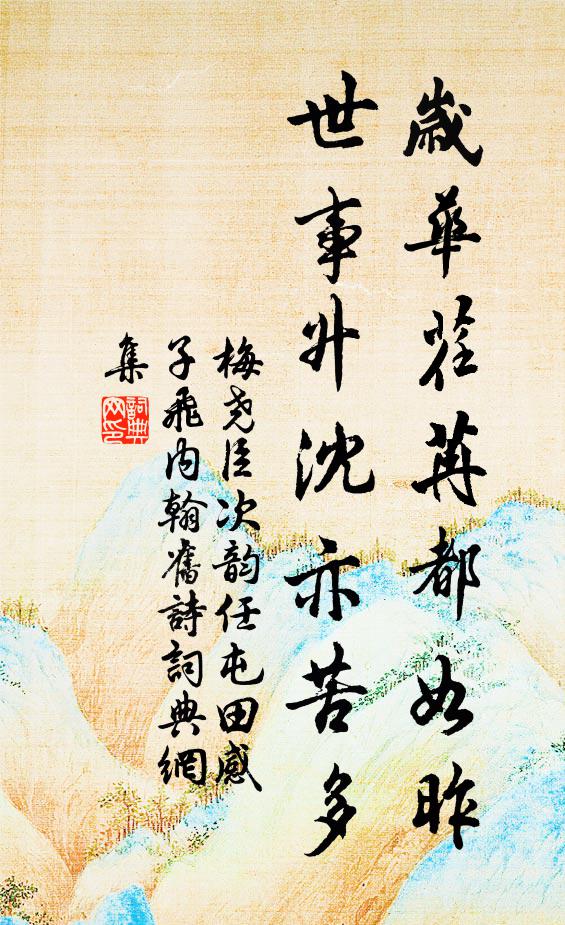 歲華荏苒都如昨
世事升沈亦苦多
梅堯臣次韵任屯田感
子飛內翰舊詩詞典網
集
詞典
网印